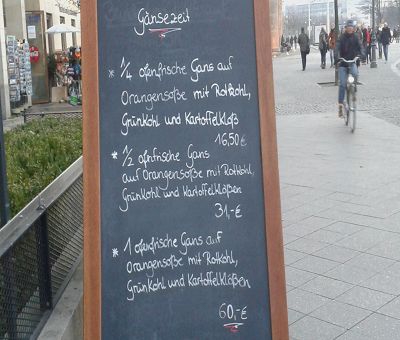 Gänsezeit
* 1/4 ofenfrische Gans auf
Orangensoße mit Rotkohl,
Grünkohl und Kartoffelkloß
16,50€
* 1/2 ofenfrische Gans
auf Orangensoße mit Rotkohl,
Grünkohl und Kartoffelklößen
31,-€
* 1 ofenfrische Gans auf
Orangensoße mit Rotkohl,
Grünkohl und Kartoffelklößen
60,-€